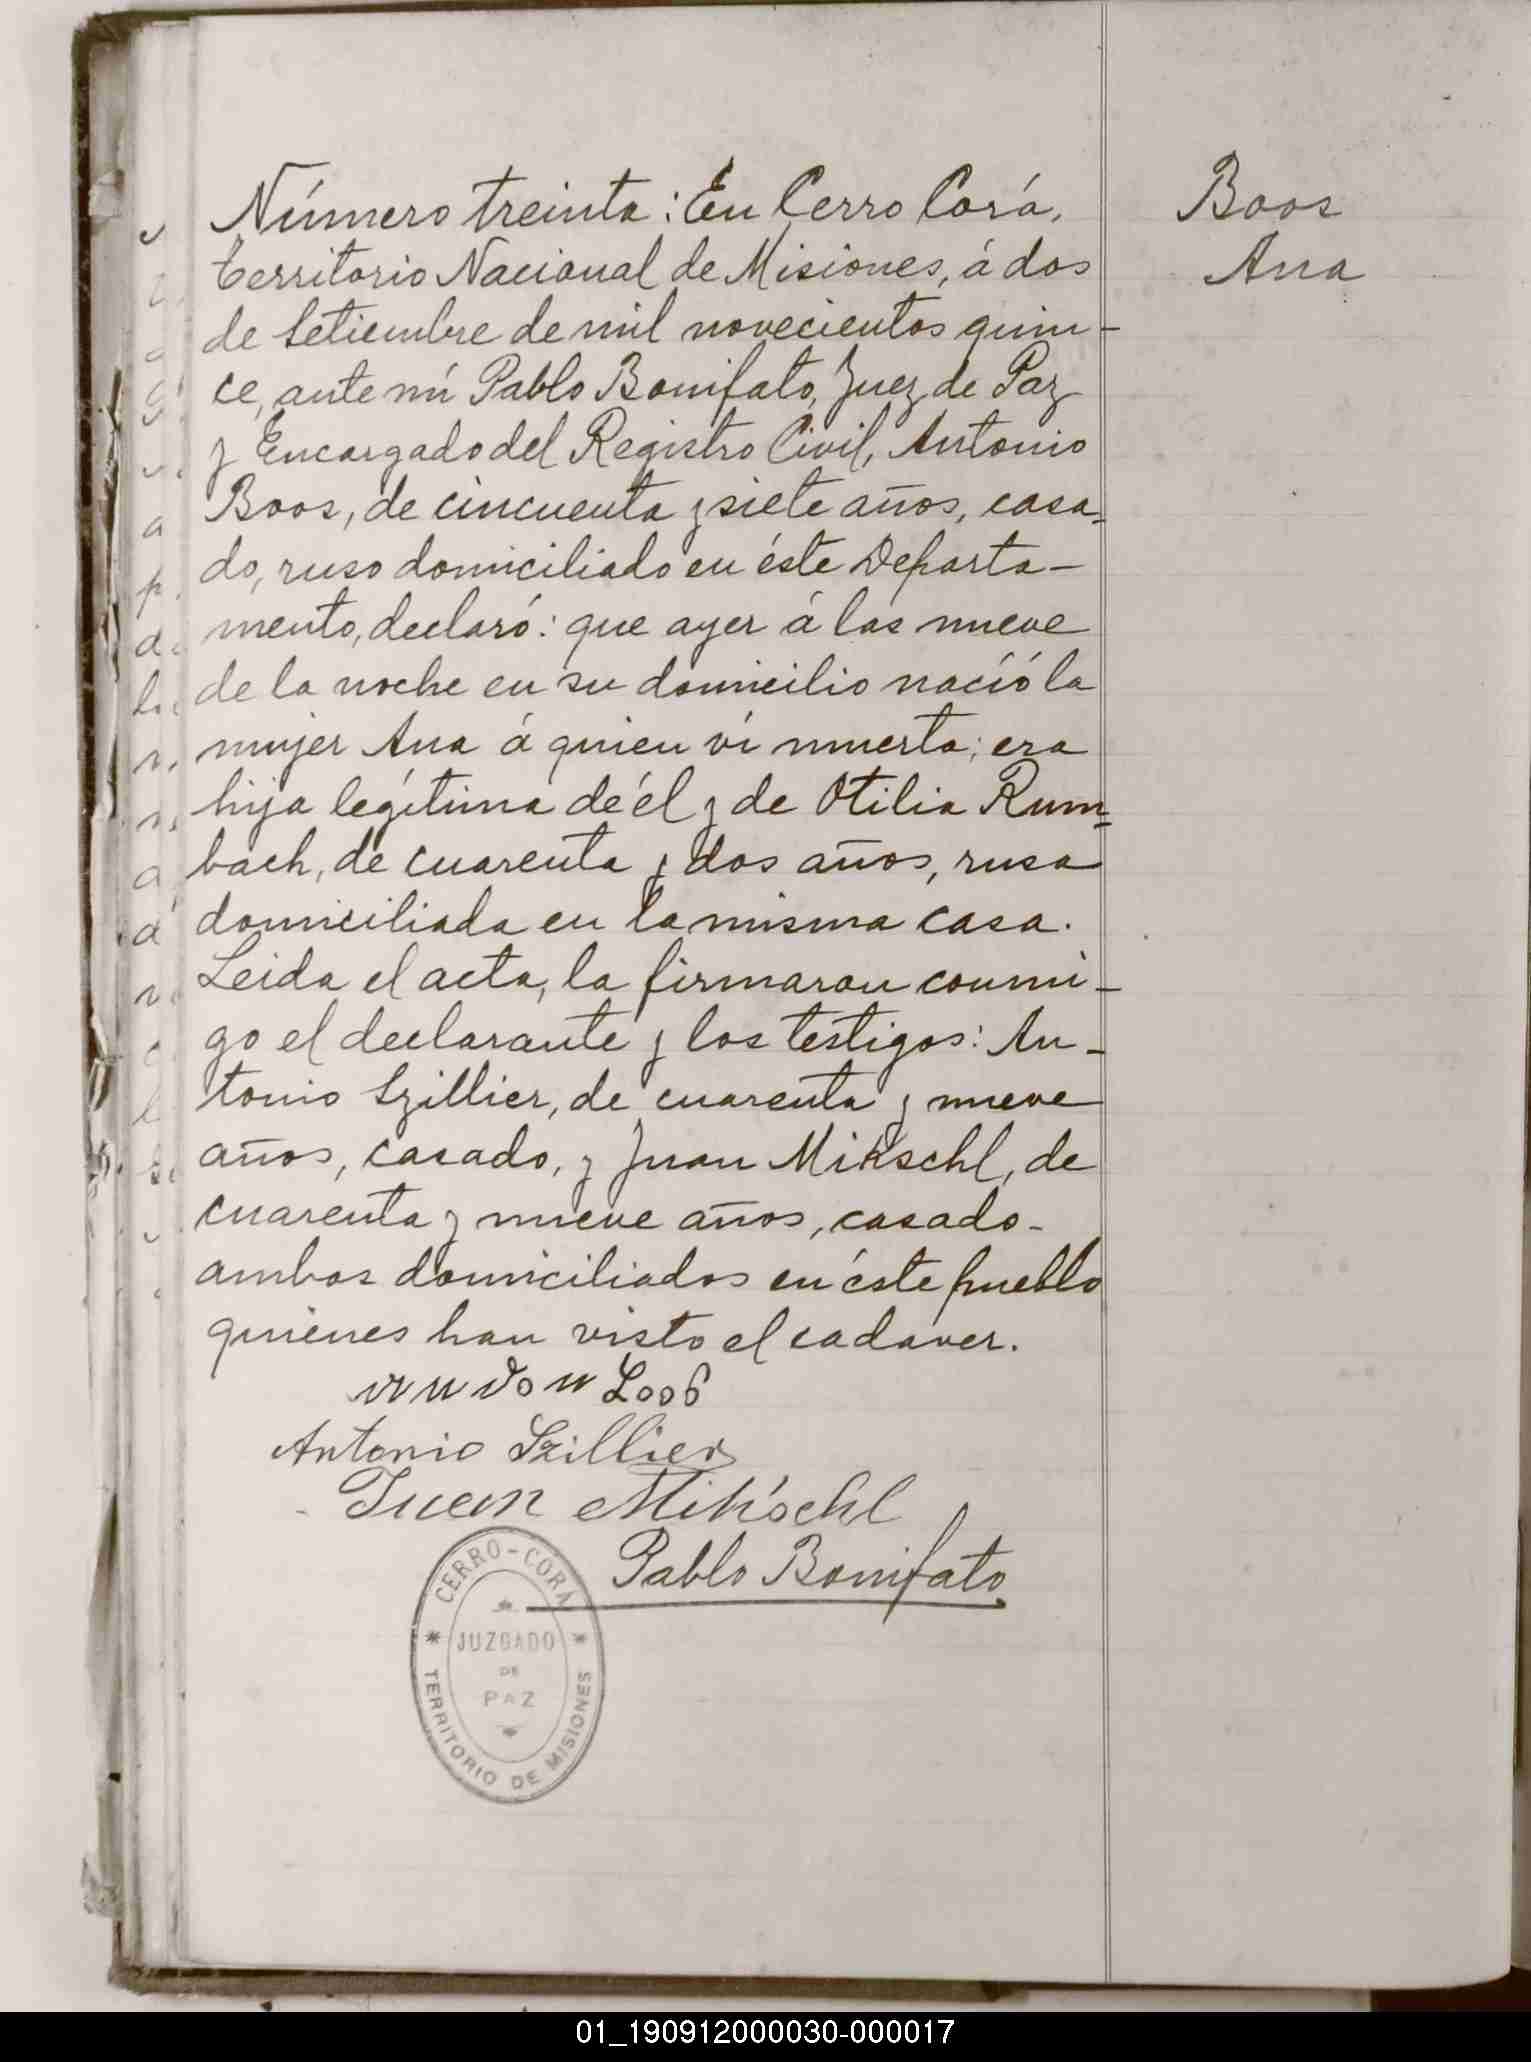 Número treinta: En Cerro Corá,
territorio Nacional de Misiones, á dos
de Setiembre de mil novecientos quin-
ce, ante mí Pablo Bonifato, Juez de Paz
y Encargado del Registro Civil, Antonio
Boos, de cincuenta y siete años, casa-
do, ruso domiciliado en éste Departa-
mento, declaró: que ayer á las nueve
de la noche en su domicilio nacíó la
mujer Ana á quien ví muerta; era
hija legítima de él y de Otilia Rum=
bach, de cuarenta y dos años, rusa
domiciliada en la misma casa.
Leida el acta, la firmaron conmi-
go el declarante y los testigos: An-
tonio Szillier, de cuarenta y nueve
años, casado, y Juan Mikschl, de
cuarenta y nueve años, casado-
ambos domiciliados en éste pueblo
quienes han visto el cadaver.
Antonio Szillier
Juan Mikschl
Pablo Bonifato
CERRO-CORÁ
JUZGADO
DE
PAZ
TERRITORIO DE MISIONES
Boos
Ana
01_190912000030-000017